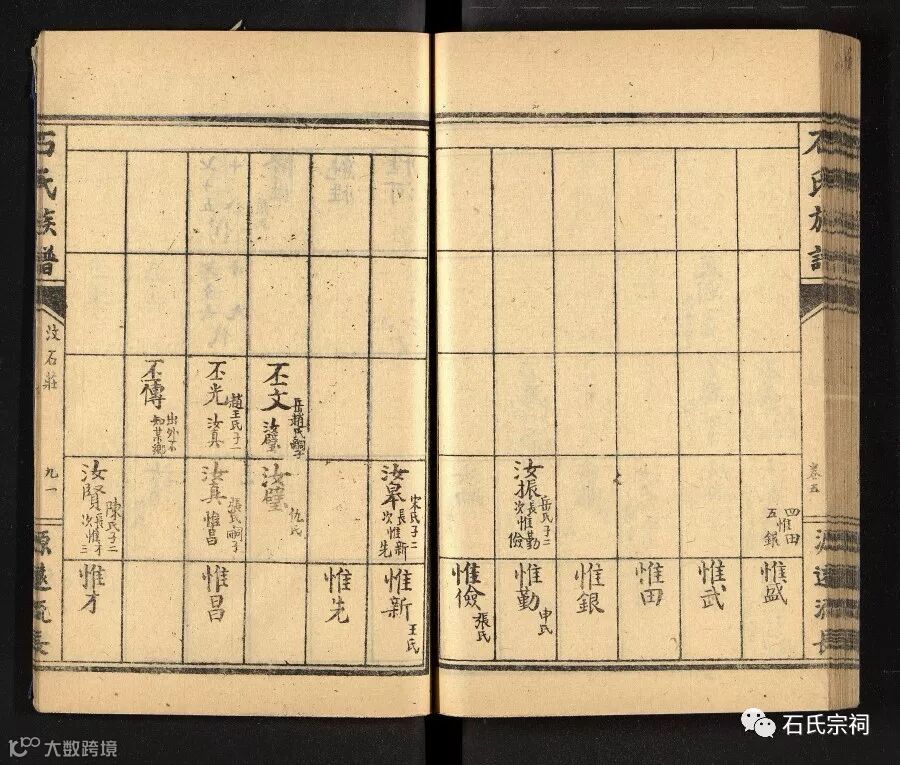 石氏族譜
卷五
源遠流長
四惟田
五銀
惟盛
惟武
惟田
惟銀
汝振
岳氏子二
長惟勤
次惟儉
惟勤
申氏
惟儉
張氏
汝皋
宋氏子二
長惟新
次惟先
惟新
王氏
惟先
丕文
岳趙氏嗣子
汝璧
汝璧
仇氏
丕光
趙王氏子二
汝真
汝真
張氏嗣子
惟昌
惟昌
丕傳
出外不
知某鄉
汝賢
陳氏子二
長惟才
次三
惟才
石氏族譜
汶石莊
九一
源遠流長
石氏宗祠
大数跨境